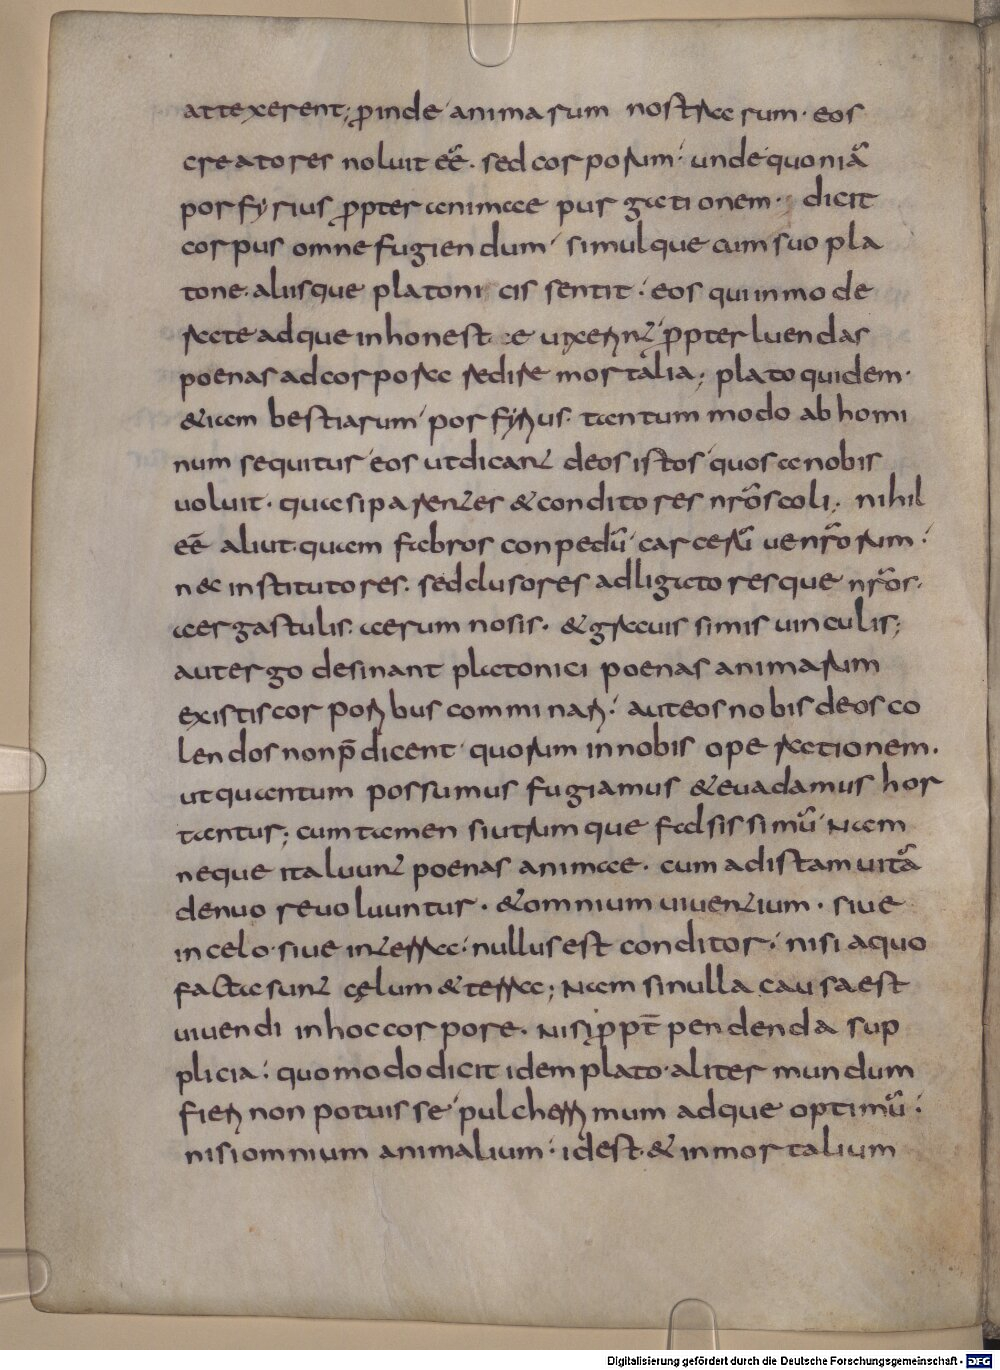 attexerent; ꝓinde animarum nostrarum· eos
creatores noluit eē̄· sed corporum· unde quoniā
porfyrius ꝓpter animae purgationem· dicit
corpus omne fugiendum simulque cum suo pla
tone· aliisque platonicis sentit· eos qui inmode
rate adque inhonestae uixerint ꝓpter luendas
poenas ad corpora redire mortalia; plato quidem·
&iam bestiarum porfyrius· tantum modo ab homi
num sequitur eos ut dicant deos istos quos a nobis
uoluit· qua si parentes & conditores nrōs coli; nihil
eē aliut quam fabros conpedū carcerū ue nrōrum·
nec institutores· sed clusores adligatoresque nrōs·
aergastulis· aerum nosis· & grauissimis uinculis;
aut ergo desinant platonici poenas animarum
ex istis corporibus comminari· aut eos nobis deos co
lendos non p̄dicent quorum in nobis operationem·
ut quantum possumus fugiamus & euadamus hor
tantur; cum tamen sit utrumque falsissimū Nam
neque ita luunt poenas animae· cum ad istam uitā
denuo reuoluuntur· & omnium uiuentium· siue
in celo· siue in terra· nullus est conditor· nisi a quo
facta sunt cęlum & terra; Nam si nulla causa est
uiuendi in hoc corpore· Nisi ꝓpt̄ pendenda sup
plicia· quomodo dicit idem plato· aliter mundum
fieri non potuisse pulcherrimum adque optimū·
nisi omnium animalium· id est· & inmortalium
Digitalisierung gefördert durch die Deutsche Forschungsgemeinschaft - DFG